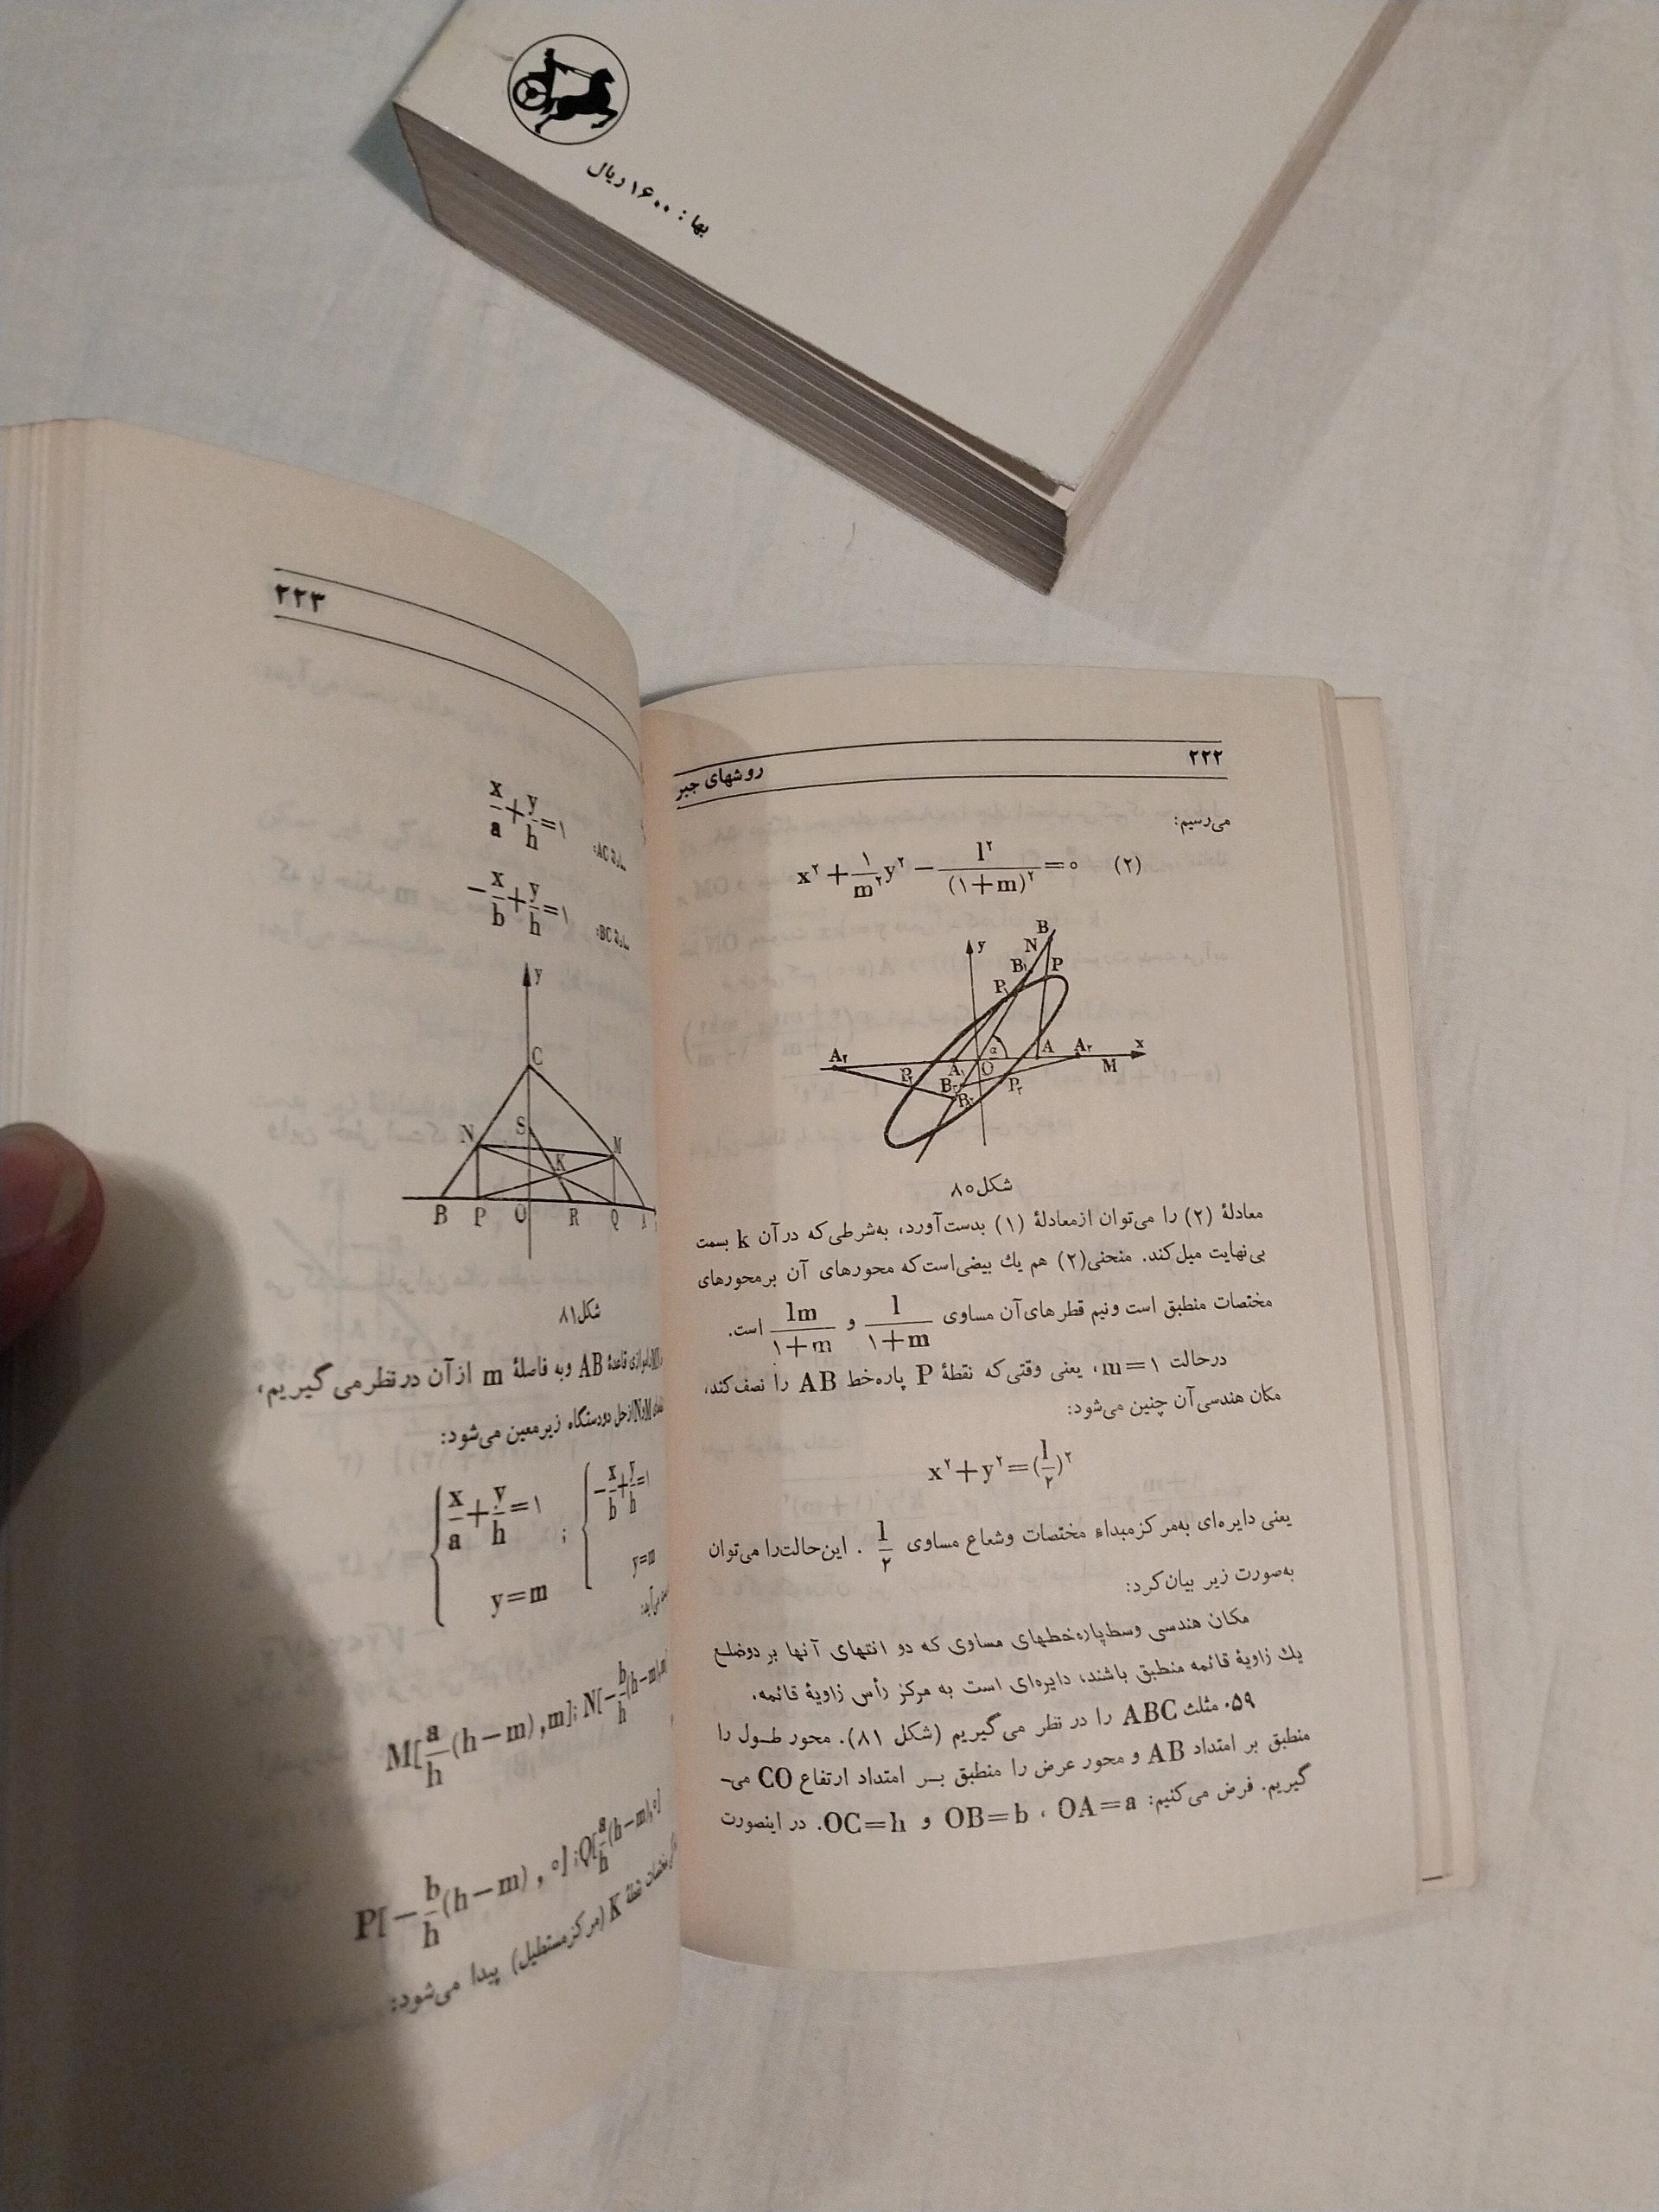 بها : ۱۶۰۰ ریال
۲۲۲
روشهای جبر
می‌رسیم:
x۲ + ۱/m۲ y۲ − l۲/(۱+m)۲ = ۰ (۲)
y
B
N
B۱
P
P۱
A۲
A۱
O
α
A
A۲
x
M
P۲
B۲
P۲
B۲
شکل ۸۰
معادلهٔ (۲) را می‌توان ازمعادلهٔ (۱) بدست‌آورد، به‌شرطی‌که درآن k بسمت
بی‌نهایت میل‌کند. منحنی(۲) هم یك بیضی‌است‌که محورهای آن برمحورهای
مختصات منطبق است ونیم قطرهای‌آن مساوی l/۱+m و lm/۱+m است.
درحالت m=۱، یعنی وقتی‌که نقطهٔ P پاره‌خط AB را نصف‌کند،
مکان هندسی‌آن چنین می‌شود:
x۲+y۲=(l/۲)۲
یعنی دایره‌ای به‌مرکزمبداء مختصات وشعاع مساوی l/۲ . این‌حالت‌را می‌توان
به‌صورت زیر بیان‌کرد:
مکان هندسی وسط‌پاره‌خطهای مساوی که دو انتهای آنها بر دوضلع
یك زاویهٔ قائمه منطبق باشند، دایره‌ای است به مرکز رأس زاویهٔ قائمه.
۵۹. مثلث ABC را در نظر می‌گیریم (شکل ۸۱). محور طول را
منطبق بر امتداد AB و محور عرض را منطبق بر امتداد ارتفاع CO می‌-
گیریم. فرض می‌کنیم: OA=a ، OB=b و OC=h. در اینصورت
۲۲۳
AC: x/a + y/h = ۱
BC: −x/b + y/h = ۱
y
C
N
S
M
K
B P O R Q A
شکل ۸۱
موازی قاعدهٔ AB وبه فاصلهٔ m ازآن درنظرمی‌گیریم،
ازحل دودستگاه زیرمعین می‌شود:
{ x/a + y/h = ۱ ; { −x/b + y/h = ۱
y=m y=m
M[a/h (h−m) , m] ; N[−b/h (h−m), m]
P[−b/h (h−m) , ۰] ; Q[a/h (h−m), ۰]
مختصات نقطهٔ K (مرکزمستطیل) پیدا می‌شود: